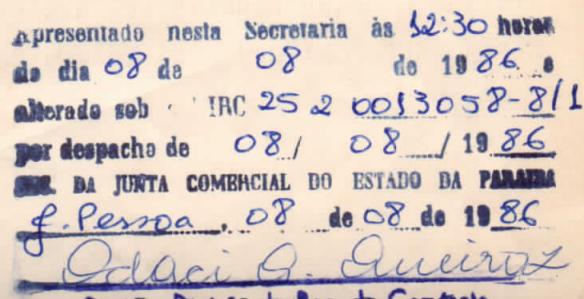 Apresentado nesta Secretaria às 12:30 horas
do dia 08 de 08 de 1986 e
alterado sob IRC 25 2 0013058-8/1
por despacho de 08 / 08 / 1986
DA JUNTA COMERCIAL DO ESTADO DA PARAIBA
J. Pessoa, 08 de 08 de 1986
Odaci A. Queiroz